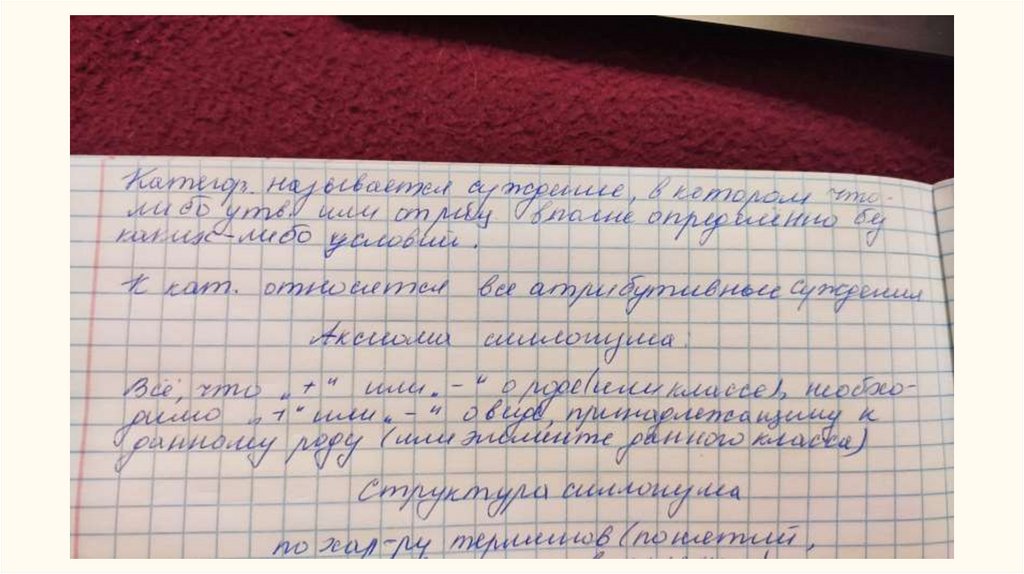 Категор. называется суждение, в котором что-
либо утв. или отриц вполне определенно без
каких-либо условий.
К кат. относятся все атрибутивные суждения
Аксиома силлогизма:
Всё, что „+“ или „-“ о роде (или классе), необхо-
димо „+“ или „-“ о виде, принадлежащему к
данному роду (или элементе данного класса)
Структура силлогизма
по хар-ру терминов (понятий,